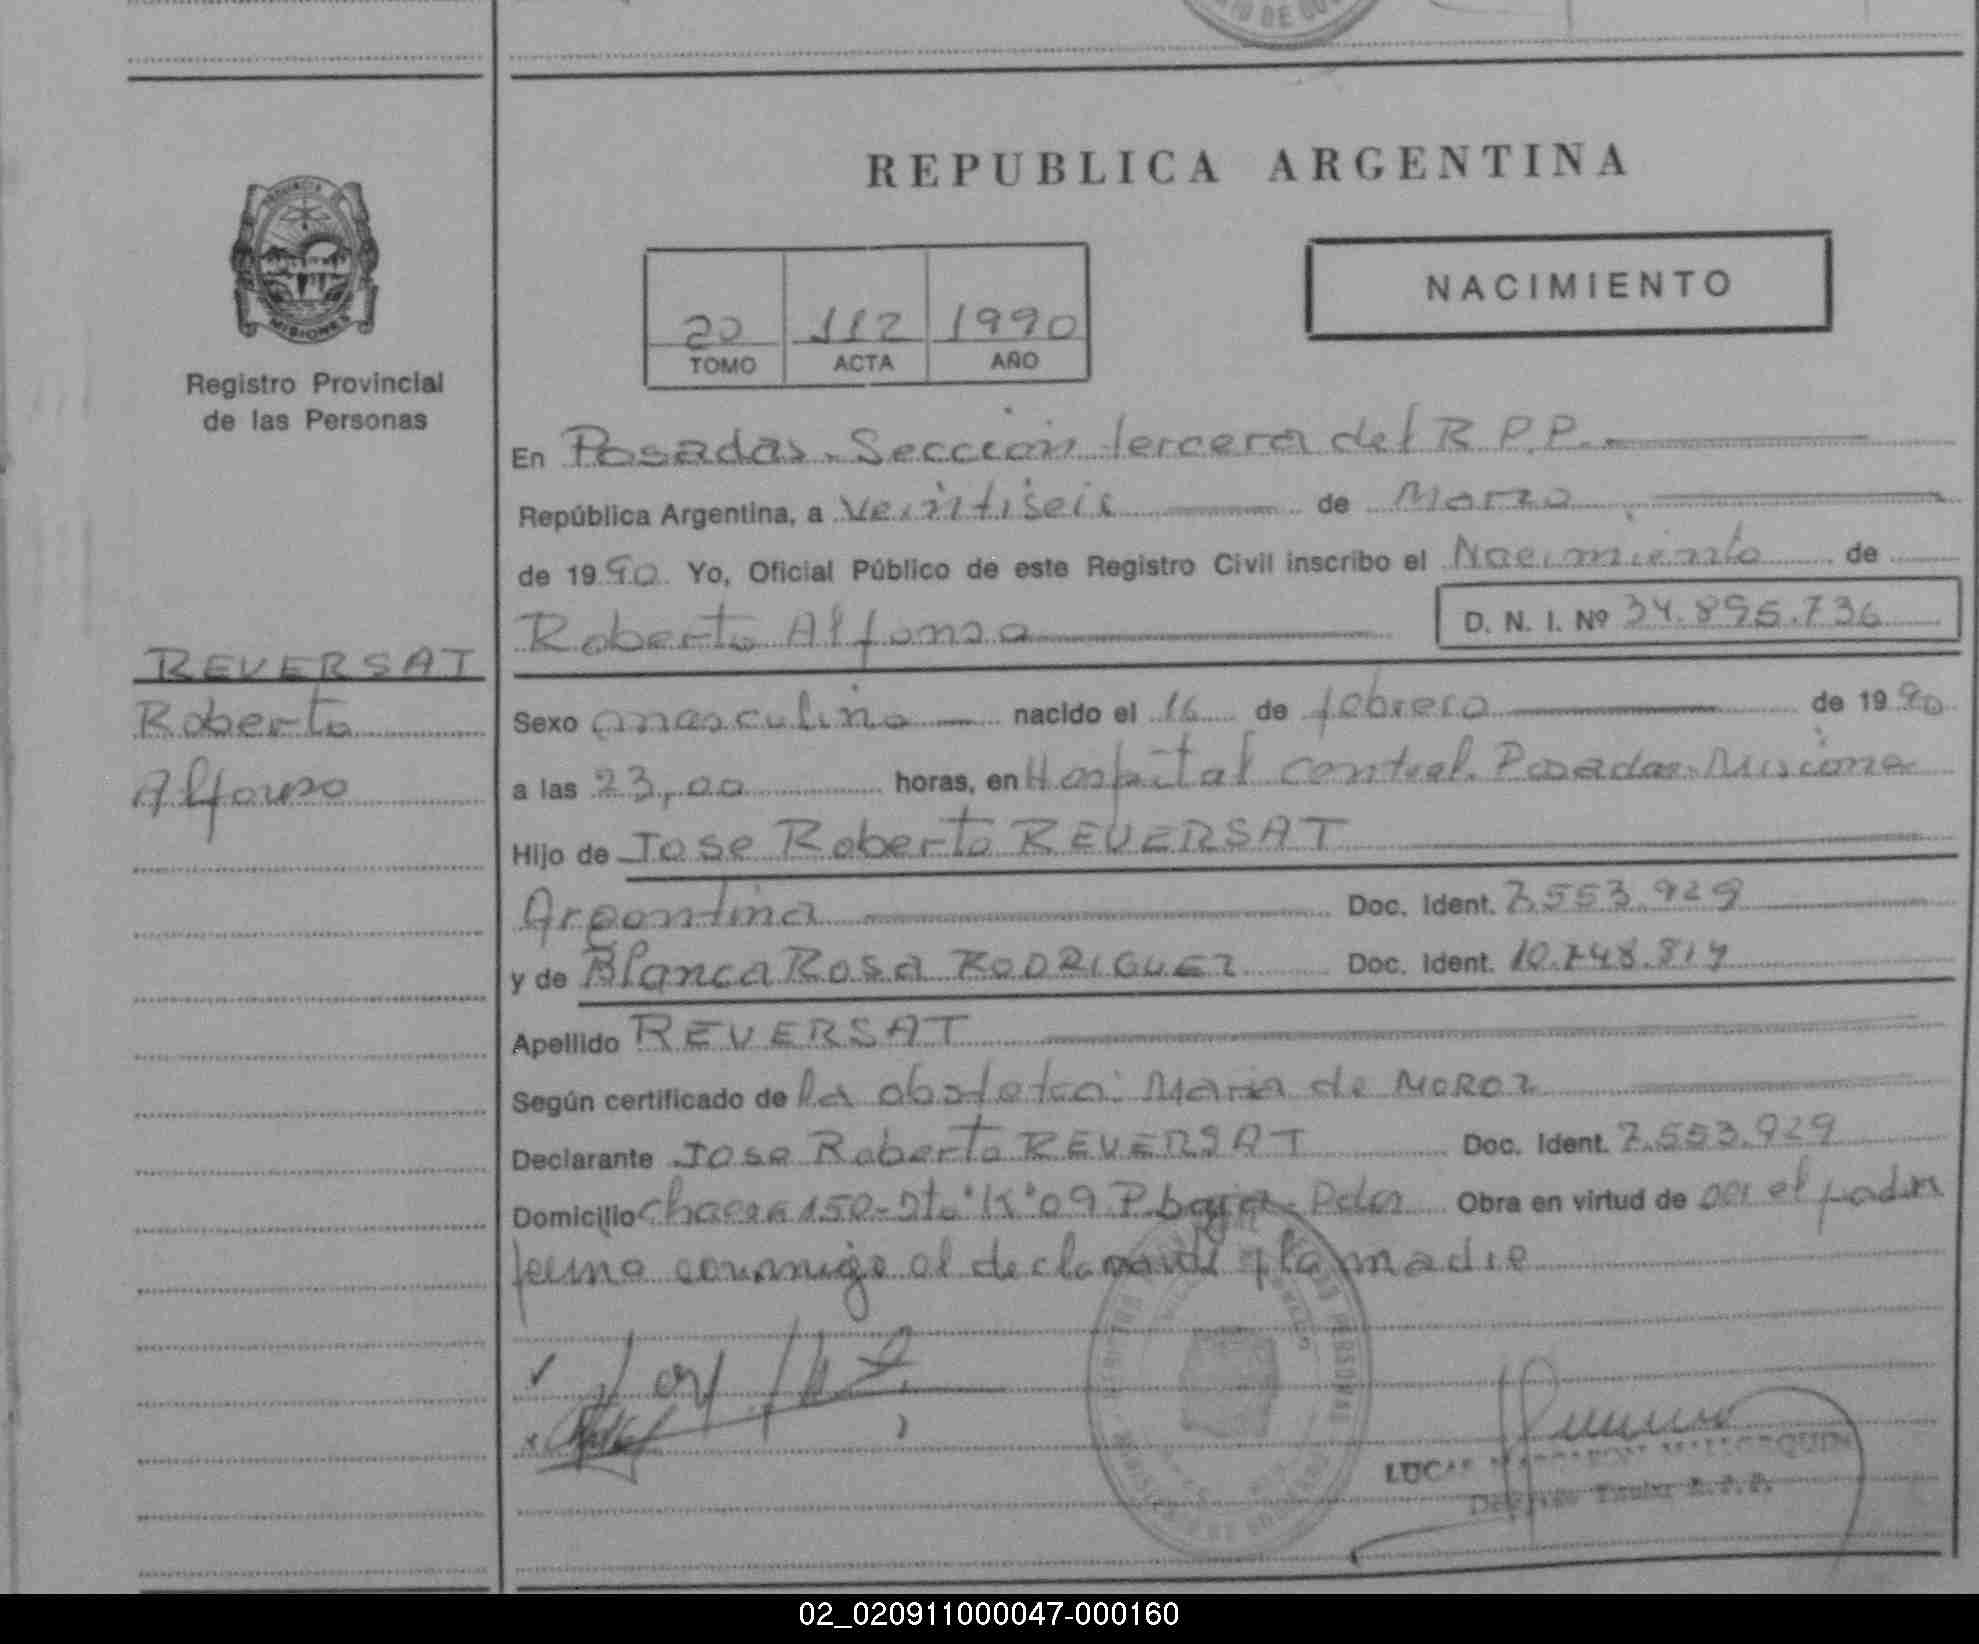 REPUBLICA ARGENTINA
NACIMIENTO
20 112 1990
TOMO ACTA AÑO
MISIONES
Registro Provincial
de las Personas
En Posadas. Sección tercera del R.P.P.
República Argentina, a veintiseis de Marzo
de 1990 Yo, Oficial Público de este Registro Civil inscribo el Nacimiento de
Roberto Alfonso D. N. I. Nº 34.895.736
REVERSAT
Roberto
Alfonso
Sexo masculino nacido el 16 de febrero de 1990
a las 23,00 horas, en Hospital Central. Posadas. Misiones
Hijo de Jose Roberto REVERSAT
Argentina Doc. Ident. 7.553.929
y de Blanca Rosa RODRIGUEZ Doc. Ident. 10.748.814
Apellido REVERSAT
Según certificado de la obstetra: Maria de MOROZ
Declarante Jose Roberto REVERSAT Doc. Ident. 7.553.929
Domicilio chacra 150-Dto "K" 09 P.baja. Pdas Obra en virtud de ser el padre
firma conmigo el declarante y la madre
LUCAS MALLORQUIN
02_020911000047-000160